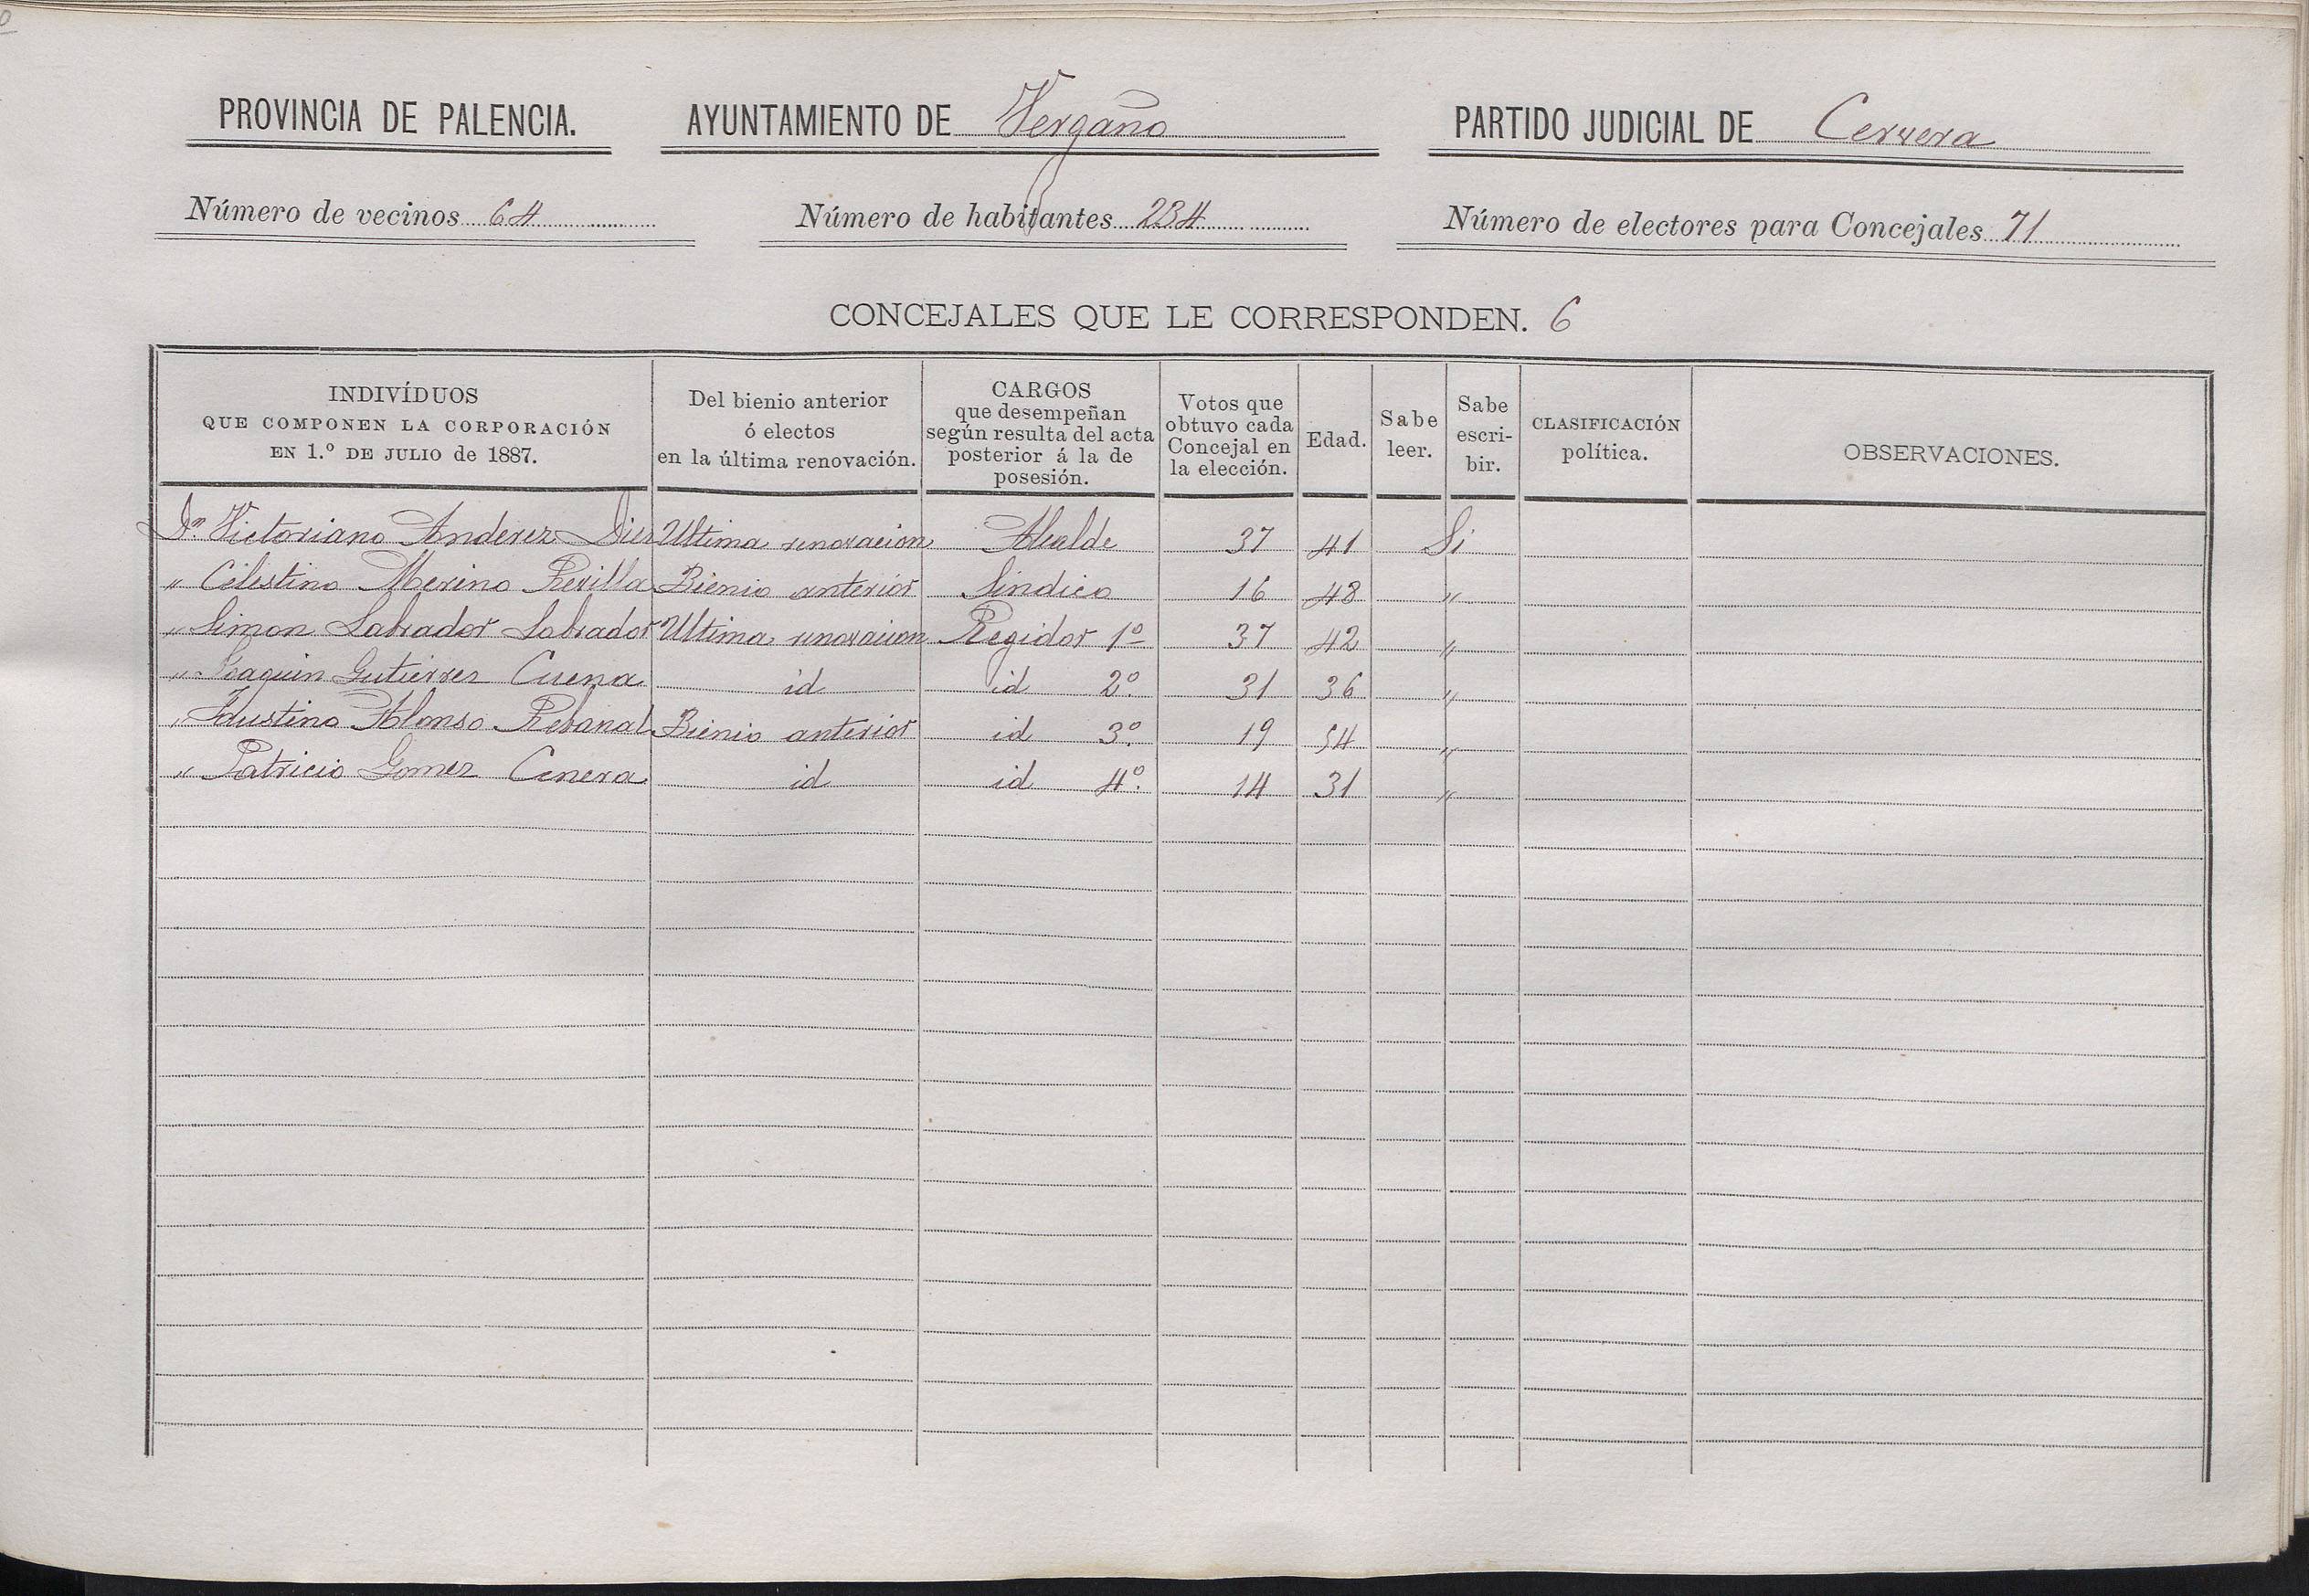 PROVINCIA DE PALENCIA. AYUNTAMIENTO DE Vergaño PARTIDO JUDICIAL DE Cervera
Número de vecinos 64 Número de habitantes 234 Número de electores para Concejales 71
CONCEJALES QUE LE CORRESPONDEN. 6
INDIVÍDUOS QUE COMPONEN LA CORPORACIÓN EN 1.º DE JULIO de 1887. Del bienio anterior ó electos en la última renovación. CARGOS que desempeñan según resulta del acta posterior á la de posesión. Votos que obtuvo cada Concejal en la elección. Edad. Sabe leer. Sabe escri-bir. CLASIFICACIÓN política. OBSERVACIONES.
Dn Victoriano Anderez Diez Ultima renovacion Alcalde 37 41 Si
" Celestino Merino Revilla Bienio anterior Sindico 16 48 "
" Simon Labrador Labrador Ultima renovacion Regidor 1º 37 42 "
" Joaquin Gutierrez Cuena id id 2º. 31 36 "
" Faustino Alonso Rebanal Bienio anterior id 3º. 19 54 "
" Patricio Gomez Cenera id id 4º. 14 31 "